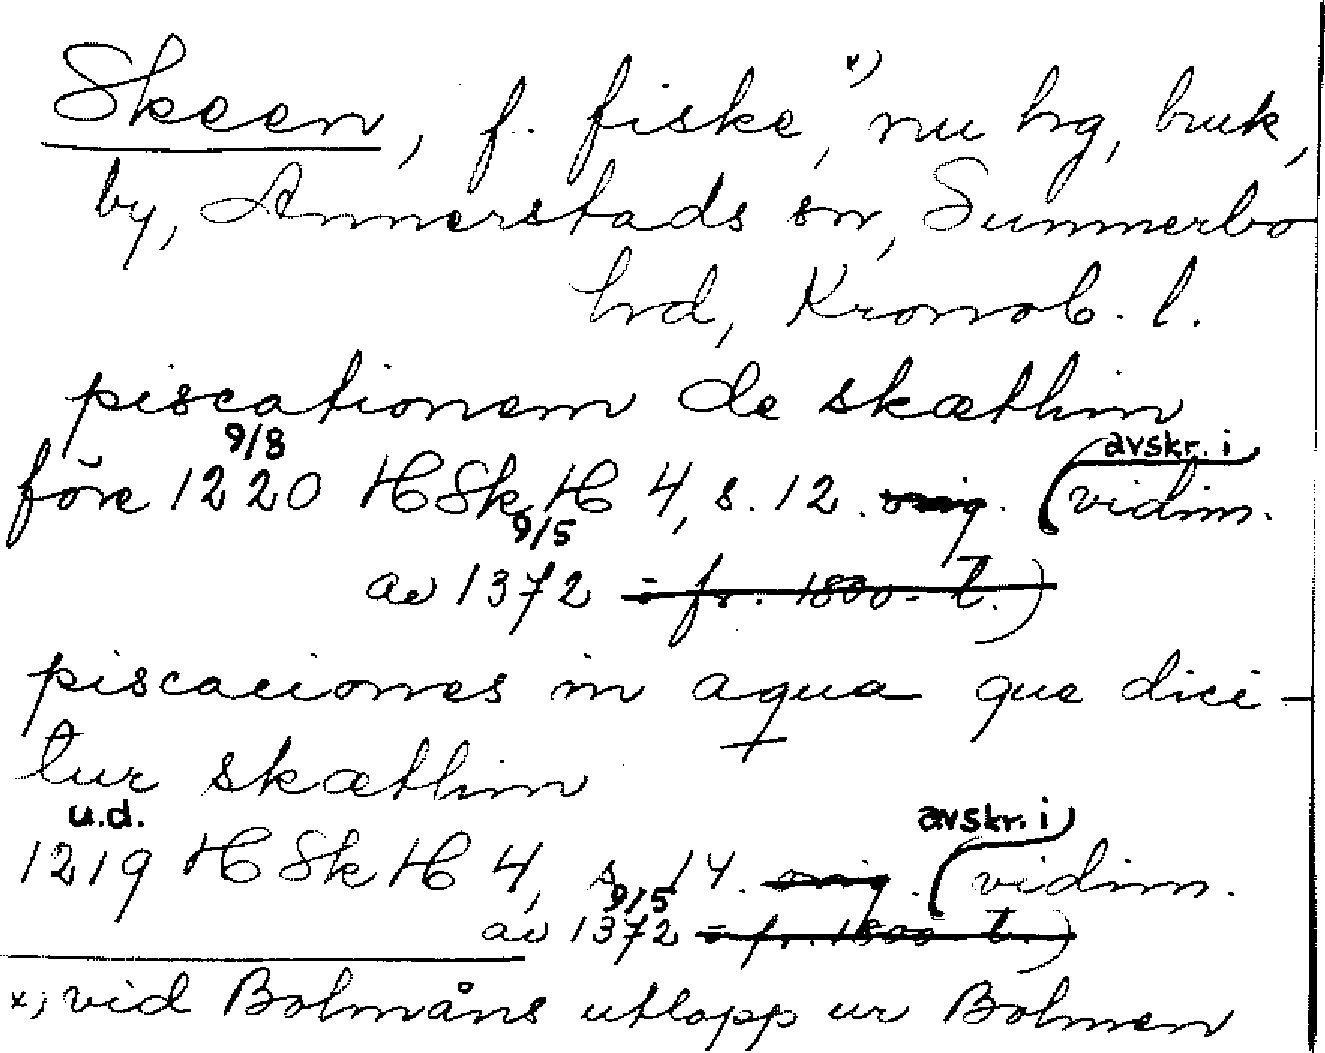 Skeen, f. fiske,x) nu hg, bruk,
by, Annerstads sn, Sunnerbo
hd, Kronob. l.
piscationem de skæthim
9/8
före 1220 HSkH 4, s. 12. orig. (avskr. i vidim.
9/5
av 1372 = fr. 1800-t.)
piscaciones in aqua que dici-
tur skæthim
u.d.
1219 HSkH 4, s. 14. orig. (avskr. i vidim.
9/5
av 1372 = fr. 1800-t.)
x) vid Bolmåns utlopp ur Bolmen